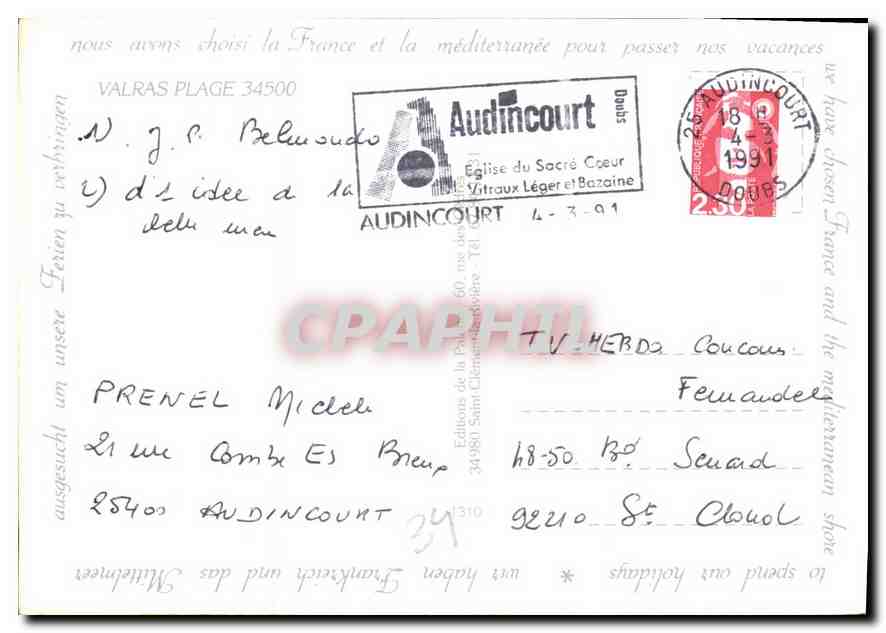 nous avons choisi la France et la méditerranée pour passer nos vacances
we have chosen France and the mediterranean shore
to spend our holidays * wir haben Frankreich und das Mittelmeer
ausgesucht um unsere Ferien zu verbringen
VALRAS PLAGE 34500
1) J. P. Belmondo
2) d'1 idée de la
belle mer
Audincourt
Doubs
Eglise du Sacré Coeur
Vitraux Léger et Bazaine
AUDINCOURT 4-3-91
25 AUDINCOURT
18 H
4-3
1991
DOUBS
2,30
CPAPHIL
Editions de la 60, rue des
34980 Saint-Clément-la-Rivière - Tél.
1310
PRENEL Michele
21 rue Combe Es
25400 AUDINCOURT
TV-HEBDO Concours
Fernandel
48-50 Bd Senard
92210 St Cloud